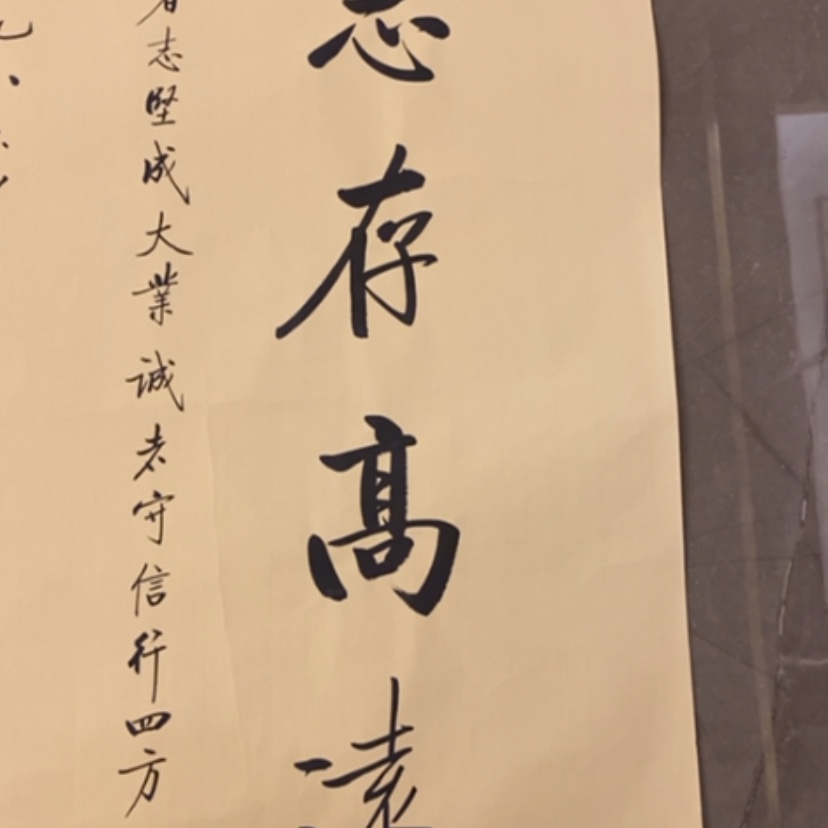 志存高遠
志堅成大業誠者守信行四方